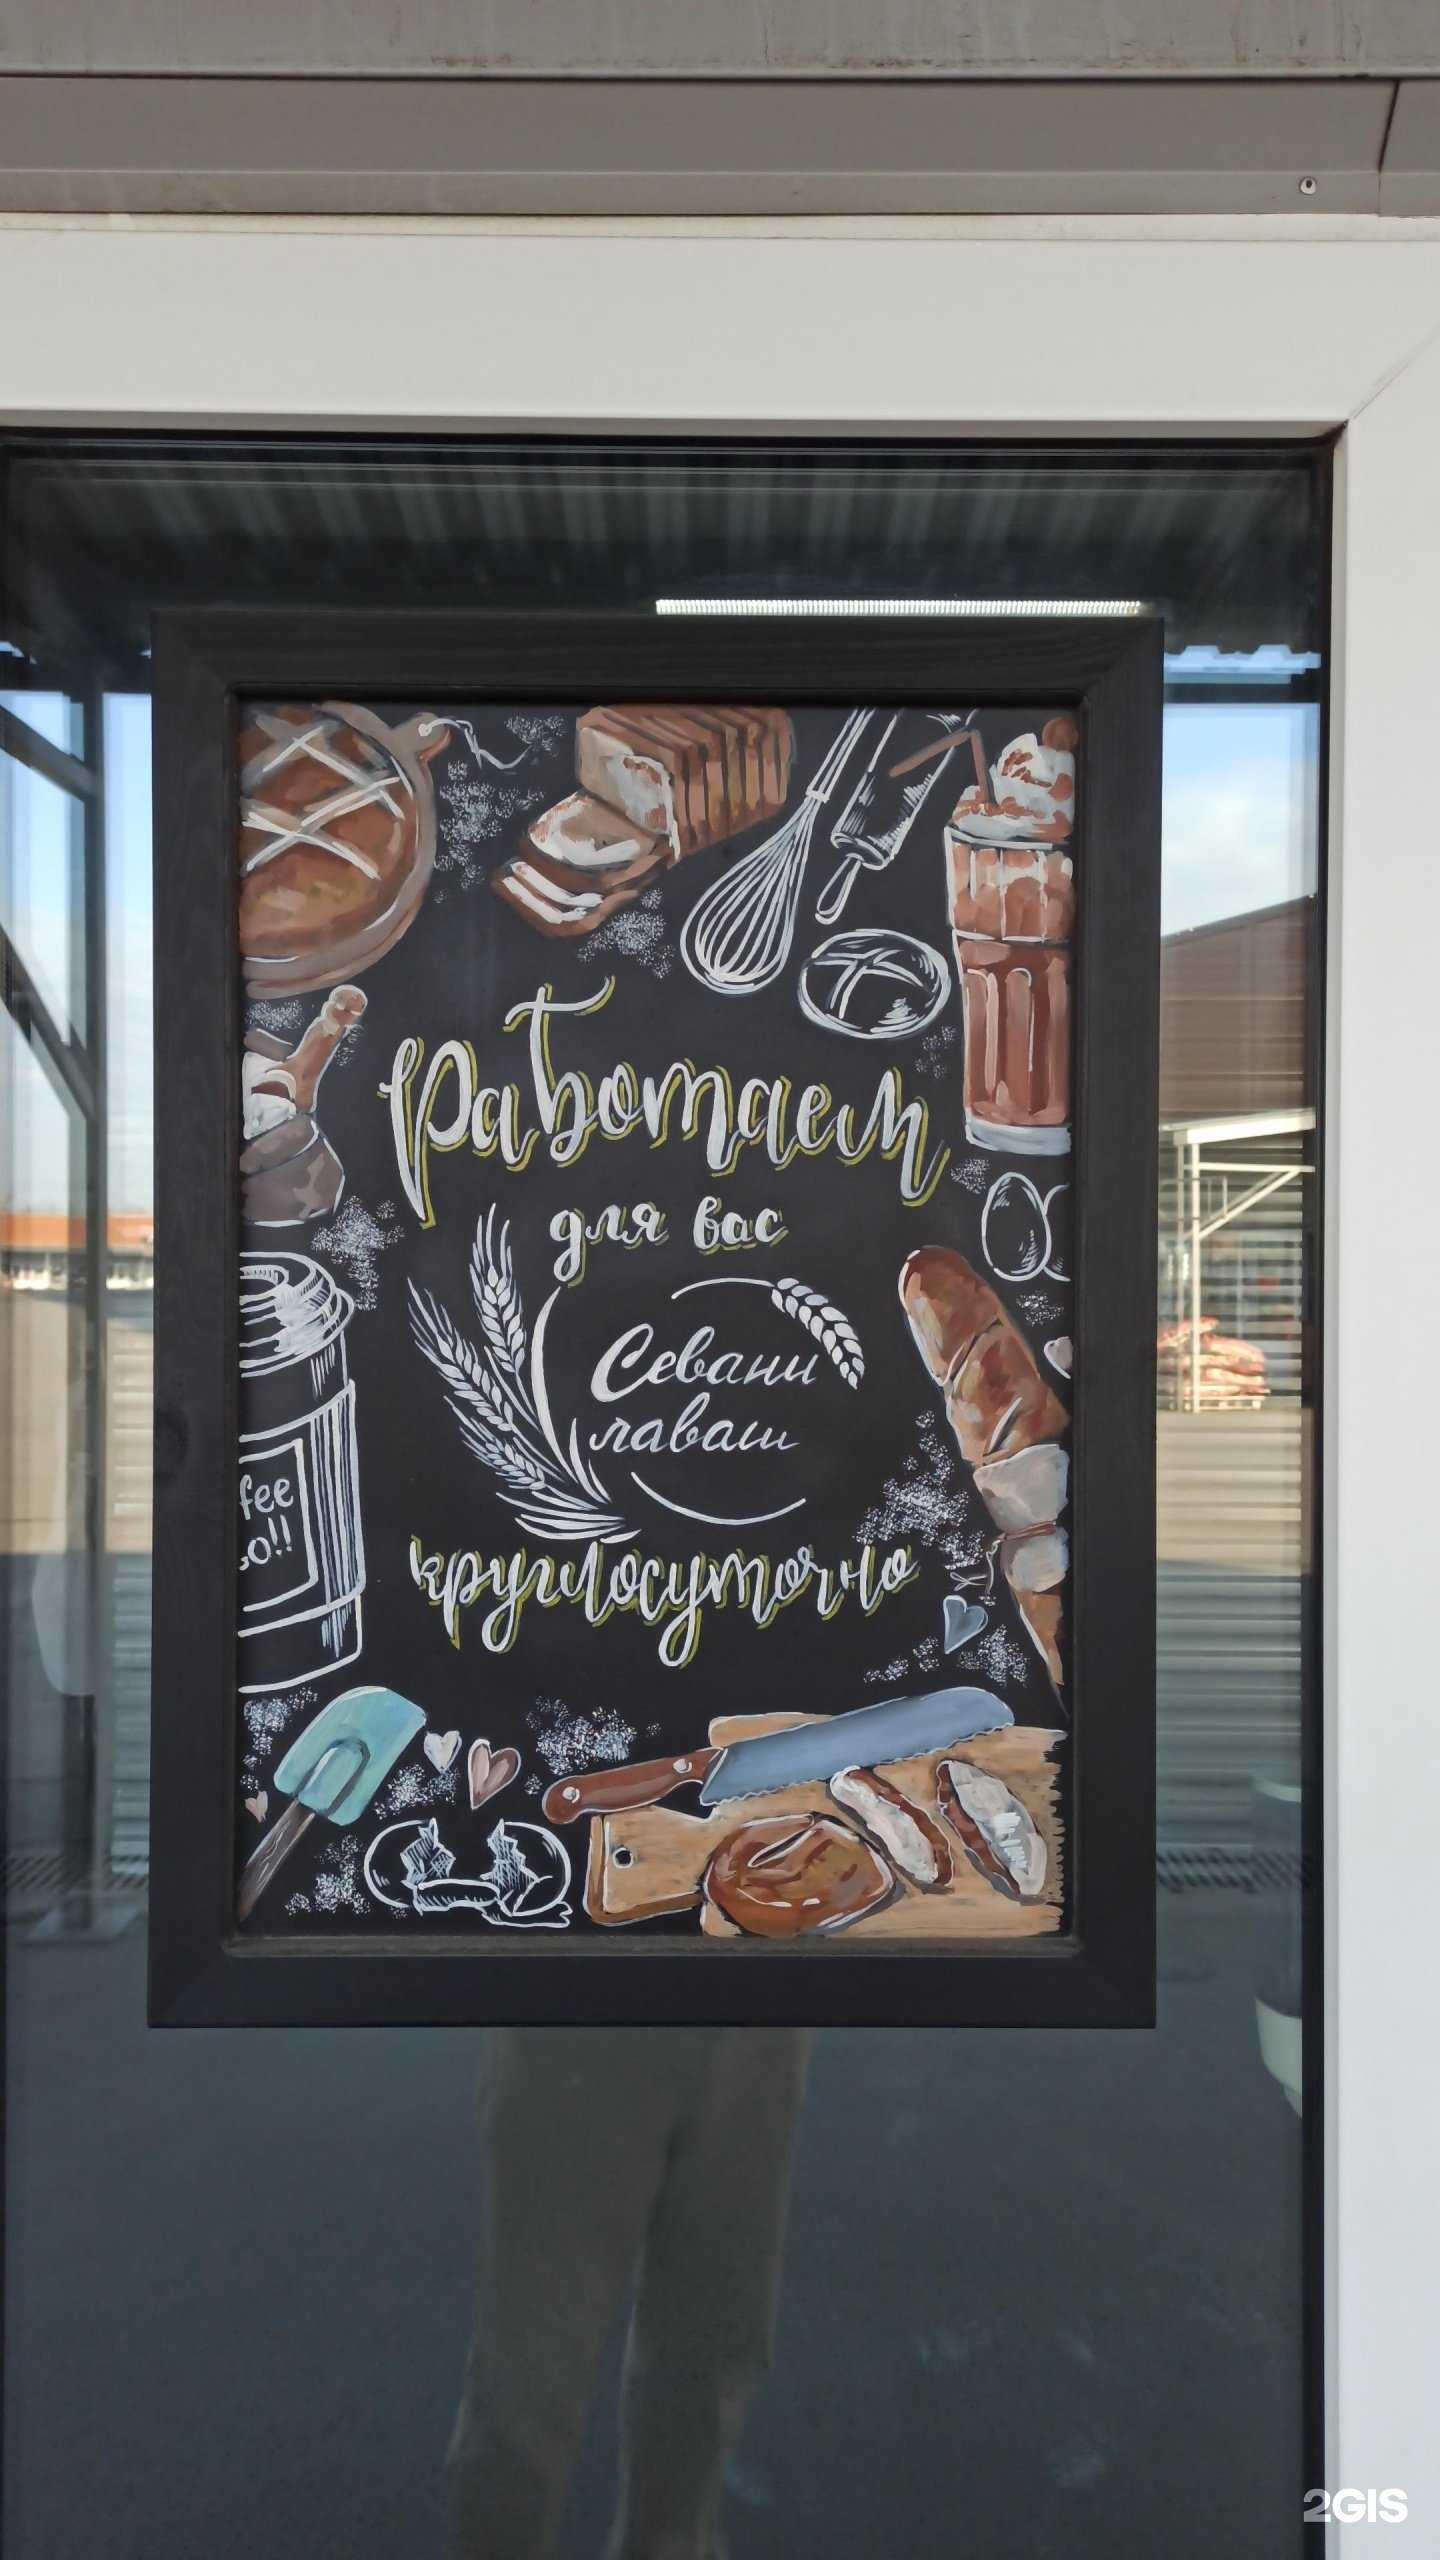 Работаем
для вас
Севани
лаваш
fee
go!!
круглосуточно
2GIS